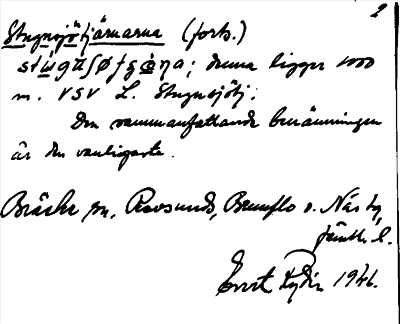 2
Stugusjötjärnarna (forts.)
denna ligger 1000
m. VSV L. Stugusjötj.
Den sammanfattande benämningen
är den vanligaste.
Bräcke sn, Revsunds, Brunflo o. Näs tg,
Jämtl. l.
Ernst 1946.